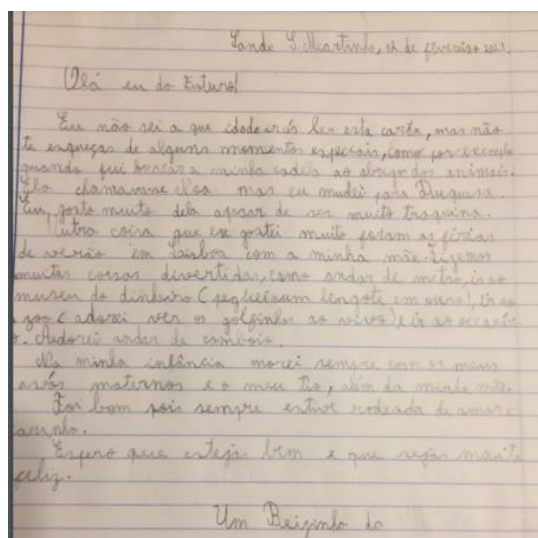 Sande S. Martinho, 12 de fevereiro 2021.
Olá eu do Futuro!
Eu não sei a que idade irás ler esta carta, mas não
te esqueças de alguns momentos especiais, como por exemplo
quando fui buscar a minha cadela ao abrigo dos animais.
Ela chamava-se Noa mas eu mudei para Duquesa.
Eu, gosto muito dela apesar de ser muito traquina.
Outra coisa que eu gostei muito foram as férias
de verão em Lisboa com a minha mãe. Fizemos
muitas coisas divertidas, como andar de metro, ir ao
museu do dinheiro (peguei num lingote em ouro), ir ao
zoo (adorei ver os golfinhos ao vivo) e ir ao oceaná
o. Adorei andar de comboio.
Na minha infância morei sempre com os meus
avós maternos e o meu tio, além da minha mãe.
Foi bom pois sempre estive rodeada de amor e
carinho.
Espero que estejas bem e que sejas muito
feliz.
Um Beijinho do